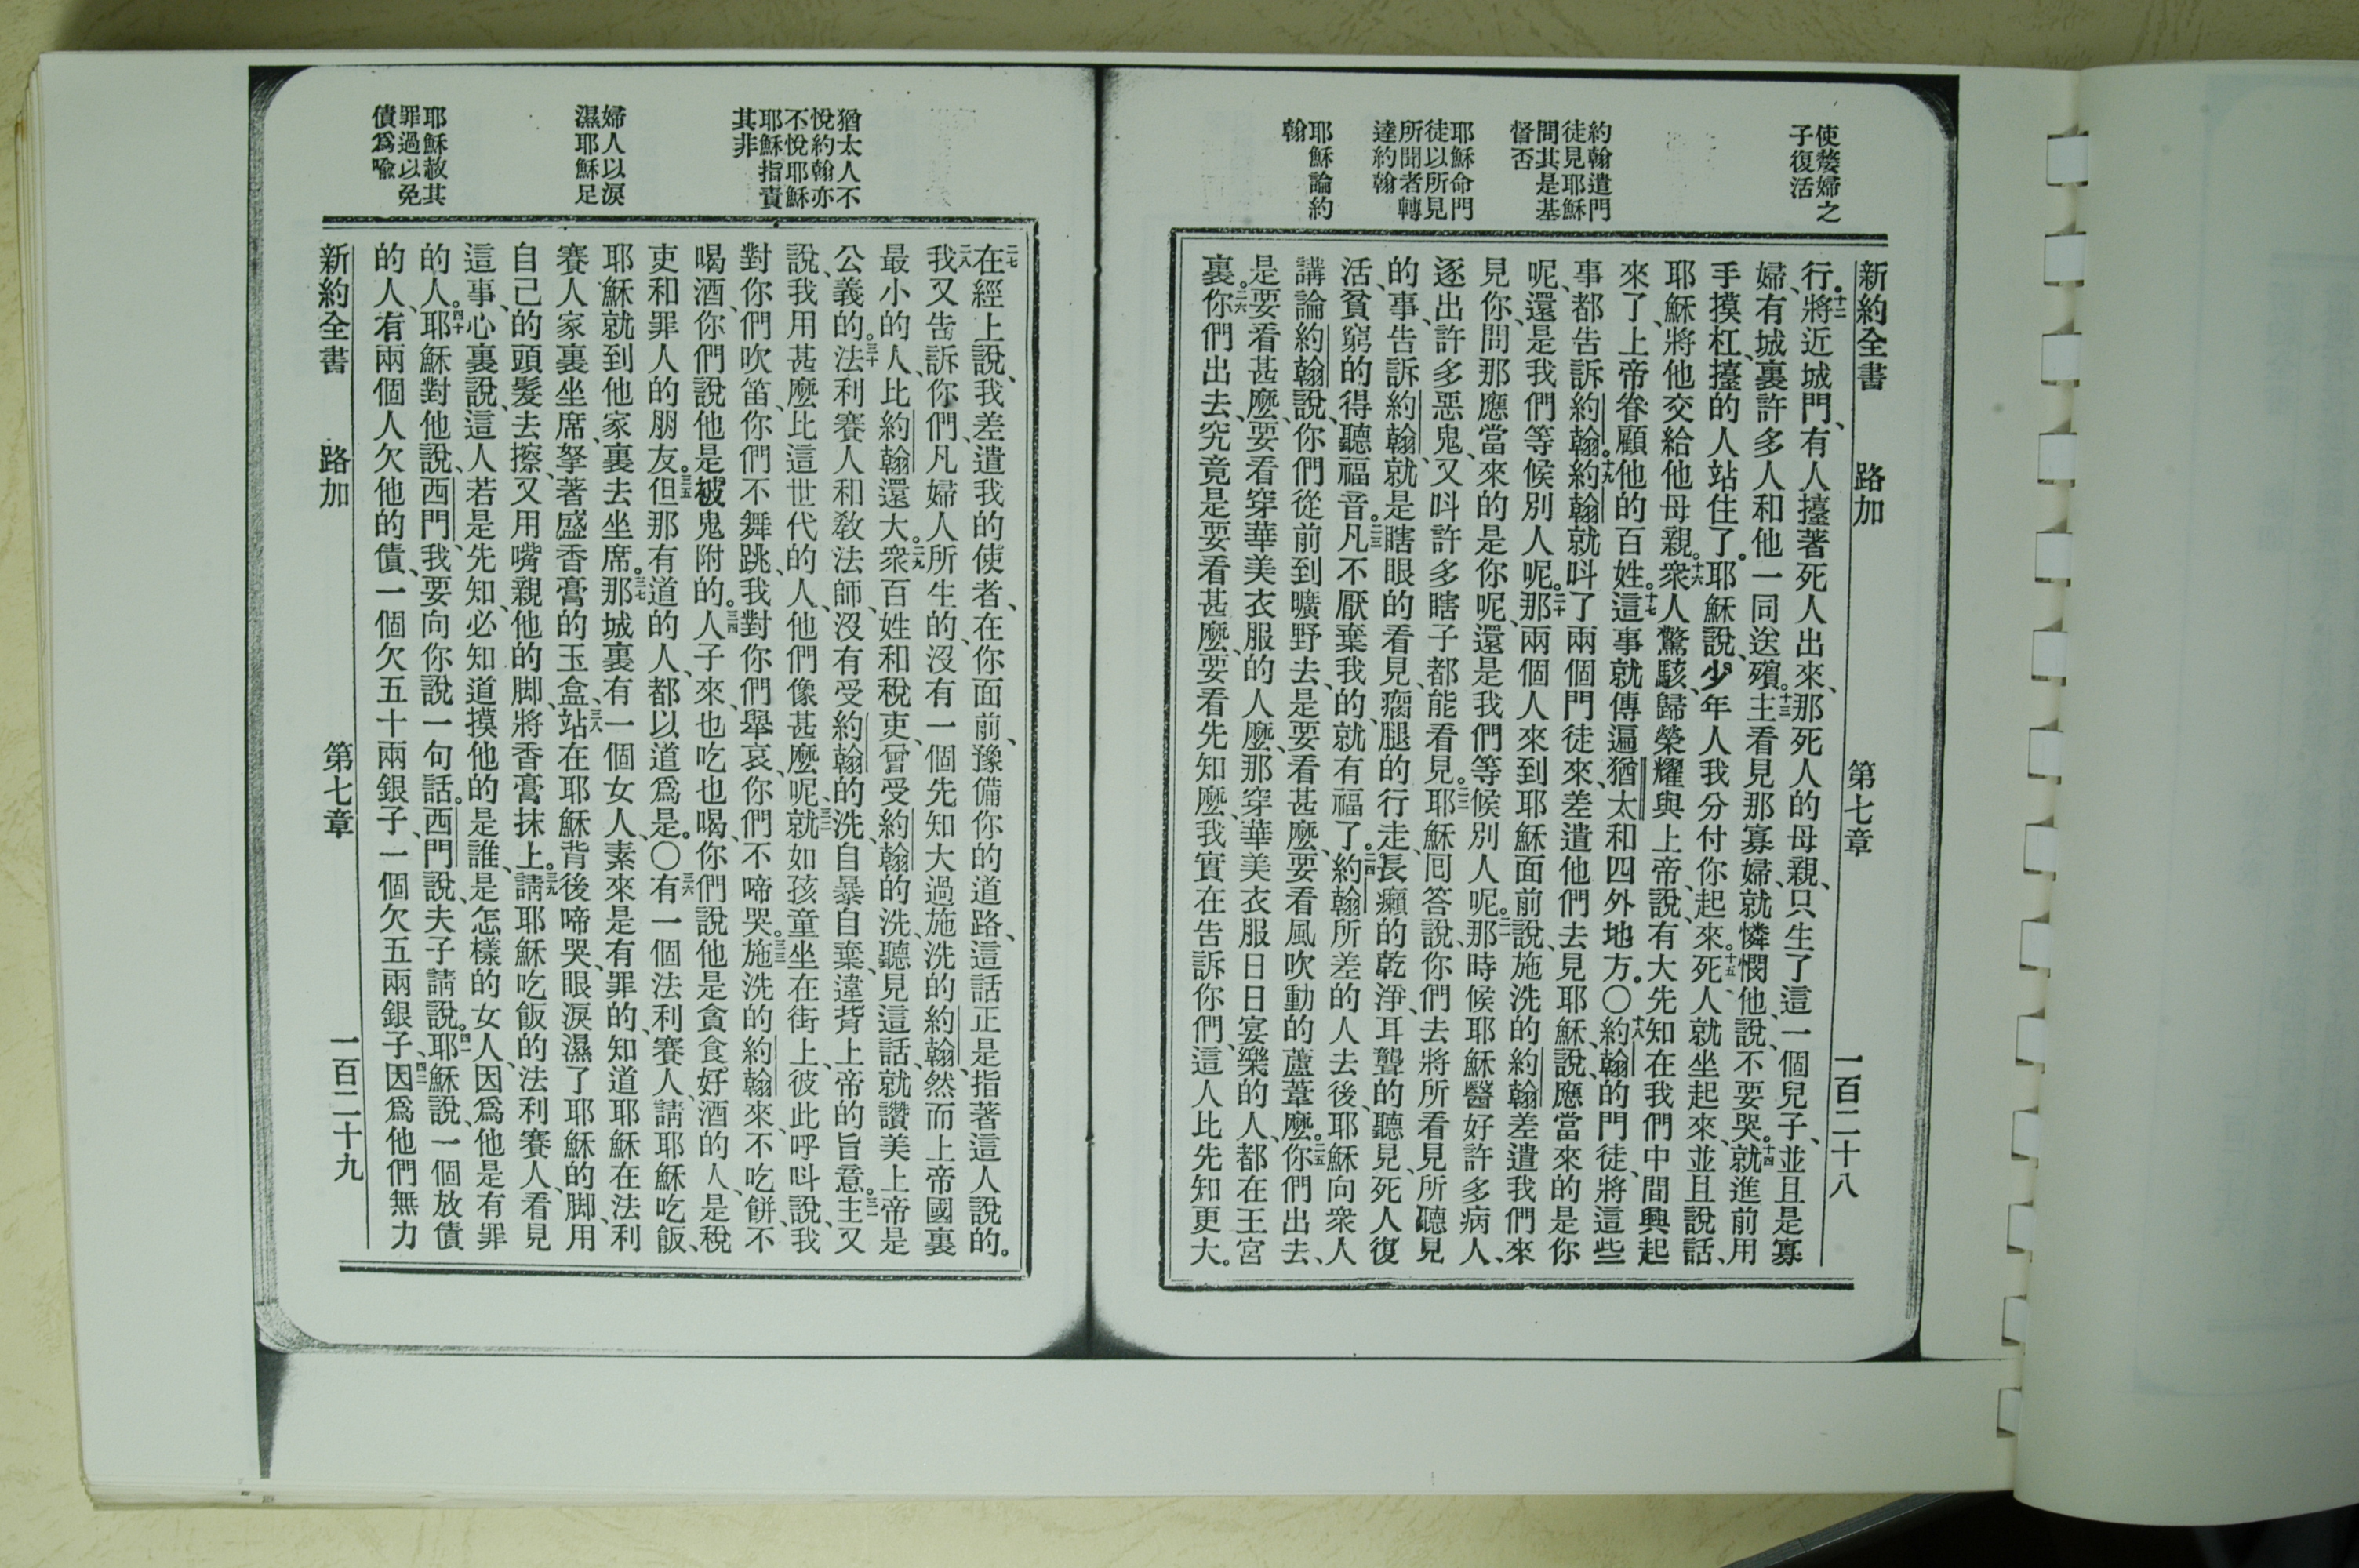 使嫠婦之
子復活
約翰遣門
徒見耶穌
問其是基
督否
耶穌命門
徒以所見
所聞者轉
達約翰
耶穌論約
翰
新約全書 路加 第七章 一百二十八
行。十二將近城門、有人擡著死人出來、那死人的母親、只生了這一個兒子、並且是寡
婦、有城裏許多人和他一同送殯。十三主看見那寡婦、就憐憫他、說、不要哭。十四就進前用
手摸杠、擡的人站住了。耶穌說、少年人我分付你起來。十五死人就坐起來、並且說話、
耶穌將他交給他母親。十六衆人驚駭、歸榮耀與上帝、說、有大先知在我們中間興起
來了、上帝眷顧他的百姓。十七這事就傳遍猶太和四外地方。〇十八約翰的門徒、將這些
事都告訴約翰。十九約翰就呌了兩個門徒來、差遣他們去見耶穌、說、應當來的是你
呢、還是我們等候別人呢。二十那兩個人來到耶穌面前說、施洗的約翰差遣我們來
見你、問那應當來的是你呢、還是我們等候別人呢。二一那時候耶穌醫好許多病人、
逐出許多惡鬼、又呌許多瞎子都能看見。二二耶穌回答說、你們去將所看見所聽見
的事、告訴約翰、就是瞎眼的看見、瘸腿的行走、長癩的乾淨、耳聾的聽見、死人復
活、貧窮的得聽福音。二三凡不厭棄我的、就有福了。二四約翰所差的人去後、耶穌向衆人
講論約翰說、你們從前到曠野去、是要看甚麽、要看風吹動的蘆葦麽。二五你們出去、
是要看甚麽、要看穿華美衣服的人麽、那穿華美衣服日日宴樂的人、都在王宮
裏。二六你們出去、究竟是要看甚麽、要看先知麽、我實在告訴你們、這人比先知更大。
猶太人不
悅約翰亦
不悅耶穌
耶穌指責
其非
婦人以淚
濕耶穌足
耶穌赦其
罪過以免
債爲喩
二七在經上說、我差遣我的使者、在你面前、豫備你的道路、這話正是指著這人說的。
二八我又告訴你們、凡婦人所生的、沒有一個先知大過施洗的約翰、然而上帝國裏
最小的人、比約翰還大。二九衆百姓和稅吏、曾受約翰的洗、聽見這話、就讚美上帝是
公義的。三十法利賽人和敎法師、沒有受約翰的洗、自暴自棄、違背上帝的旨意。三一主又
說、我用甚麽比這世代的人、他們像甚麽呢、三二就如孩童坐在街上、彼此呼呌說、我
對你們吹笛、你們不舞跳、我對你們舉哀、你們不啼哭。三三施洗的約翰來、不吃餠、不
喝酒、你們說他是被鬼附的。三四人子來、也吃也喝、你們說他是貪食好酒的人、是稅
吏和罪人的朋友。三五但那有道的人、都以道爲是。〇三六有一個法利賽人、請耶穌吃飯、
耶穌就到他家裏去坐席。三七那城裏有一個女人、素來是有罪的、知道耶穌在法利
賽人家裏坐席、拏著盛香膏的玉盒、三八站在耶穌背後啼哭、眼淚濕了耶穌的脚、用
自己的頭髮去擦、又用嘴親他的脚、將香膏抹上。三九請耶穌吃飯的法利賽人、看見
這事、心裏說、這人若是先知、必知道摸他的是誰、是怎樣的女人、因爲他是有罪
的人。四十耶穌對他說、西門、我要向你說一句話。西門說、夫子請說。四一耶穌說、一個放債
的人、有兩個人欠他的債、一個欠五十兩銀子、一個欠五兩銀子、四二因爲他們無力
新約全書 路加 第七章 一百二十九